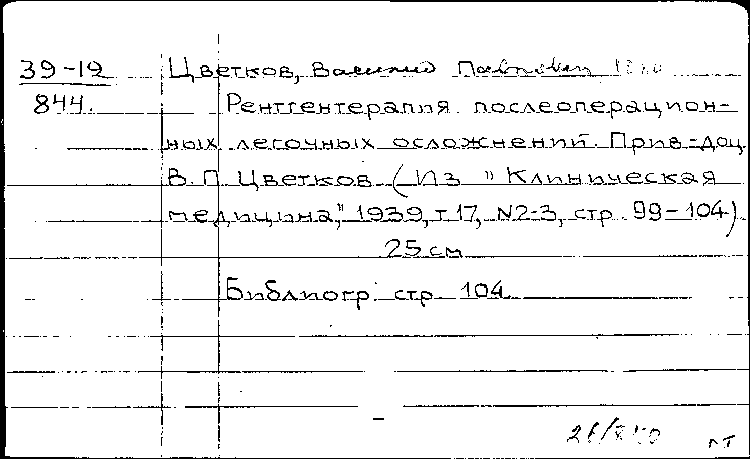 39-19 Цветков, Василий Павлович
844. Рентгентерапия послеоперацион-
ных легочных осложнений. Прив-доц.
В. П. Цветков. (Из "Клиническая
медицина", 1939, т. 17, N2-3, стр. 99-104)
25 см
Библиогр. стр. 104.